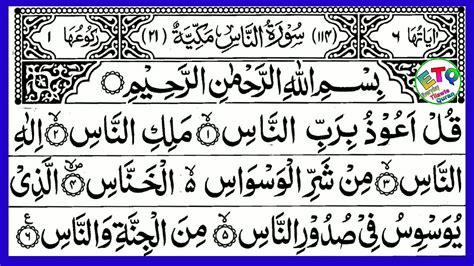 اٰیَاتُهَا ٦ (١١٤) سُوْرَةُ النَّاسِ مَكِّیَّةٌ (٢١) رُكُوْعُهَا ١
بِسْمِ اللّٰهِ الرَّحْمٰنِ الرَّحِیْمِ
ETQ
قُلْ اَعُوْذُ بِرَبِّ النَّاسِ ١ مَلِكِ النَّاسِ ٢ اِلٰهِ
النَّاسِ ٣ مِنْ شَرِّ الْوَسْوَاسِ ۵ الْخَنَّاسِ ٤ الَّذِیْ
یُوَسْوِسُ فِیْ صُدُوْرِ النَّاسِ ٥ مِنَ الْجِنَّةِ وَالنَّاسِ ٦